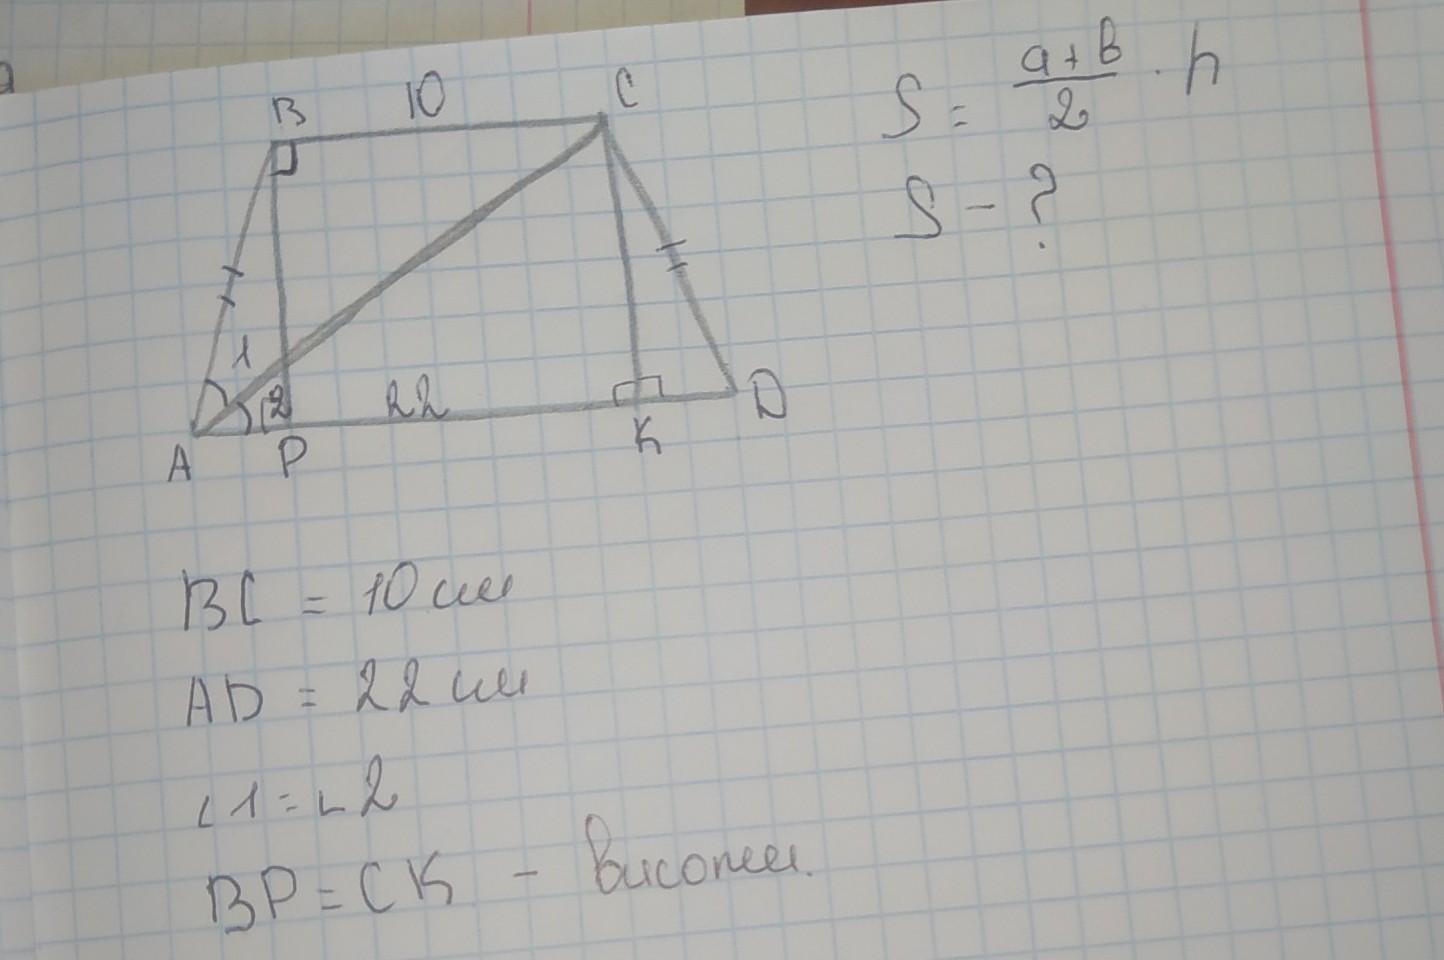 B 10 C
S = a+b/2 · h
S - ?
1
2 22
A P K D
BC = 10 см
AD = 22 см
∠1=∠2
BP=CK - висоти.